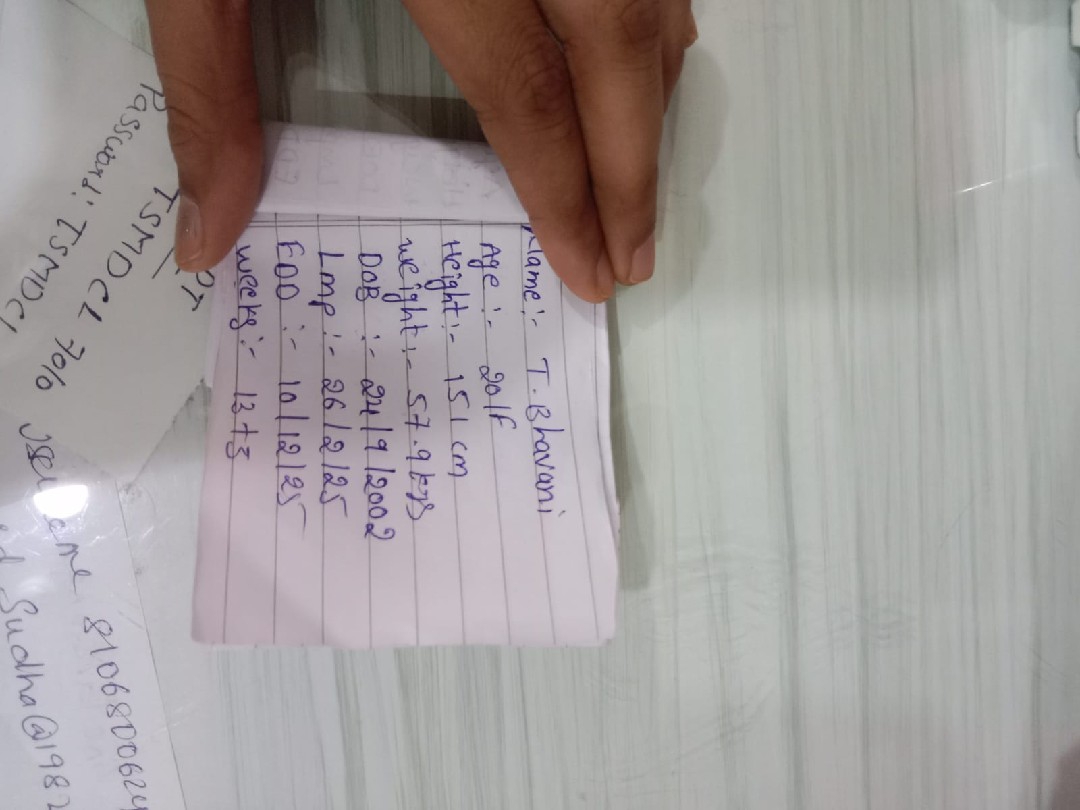 Name :- T. Bhavani
Age :- 20/F
Height :- 151 cm
weight :- 57.9 kgs
DOB :- 24/9/2002
Lmp :- 26/2/25
EDD :- 10/12/25
weeks :- 13+3
TSMDCL 7010
Password: TSMDCL
8106800624
Sudha@1982